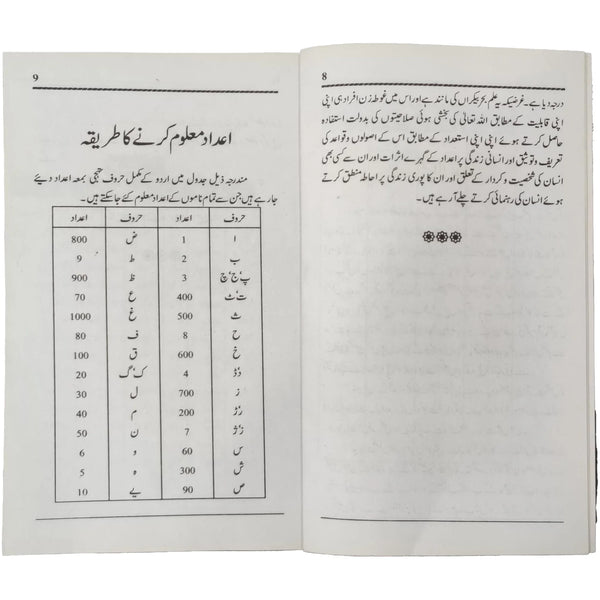 8
درجہ دیا ہے۔ غرضیکہ یہ علم بحر بیکراں کی مانند ہے اور اس میں غوطہ زن افراد ہی اپنی
اپنی قابلیت کے مطابق اللہ تعالیٰ کی بخشی ہوئی صلاحیتوں کی بدولت استفادہ
حاصل کرتے ہوئے اپنی اپنی استعداد کے مطابق اس کے اصولوں و قواعد کی
تعریف و توثیق اور انسانی زندگی پر اعداد کے گہرے اثرات اور ان سے کسی بھی
انسان کی شخصیت و کردار کے تعلق اور ان کا پوری زندگی پر احاطہ منطق کرتے
ہوئے انسان کی رہنمائی کرتے چلے آ رہے ہیں۔
9
اعداد معلوم کرنے کا طریقہ
مندرجہ ذیل جدول میں اردو کے مکمل حروف تہجی بمعہ اعداد دیئے
جا رہے ہیں جن سے تمام ناموں کے اعداد معلوم کئے جا سکتے ہیں۔
حروف اعداد حروف اعداد
ا 1 ض 800
ب 2 ط 9
پ'ج'چ 3 ظ 900
ت'ٹ 400 ع 70
ث 500 غ 1000
ح 8 ف 80
خ 600 ق 100
د'ڈ 4 ک'گ 20
ذ 700 ل 30
ر'ڑ 200 م 40
ز'ژ 7 ن 50
س 60 و 6
ش 300 ہ 5
ص 90 یے 10